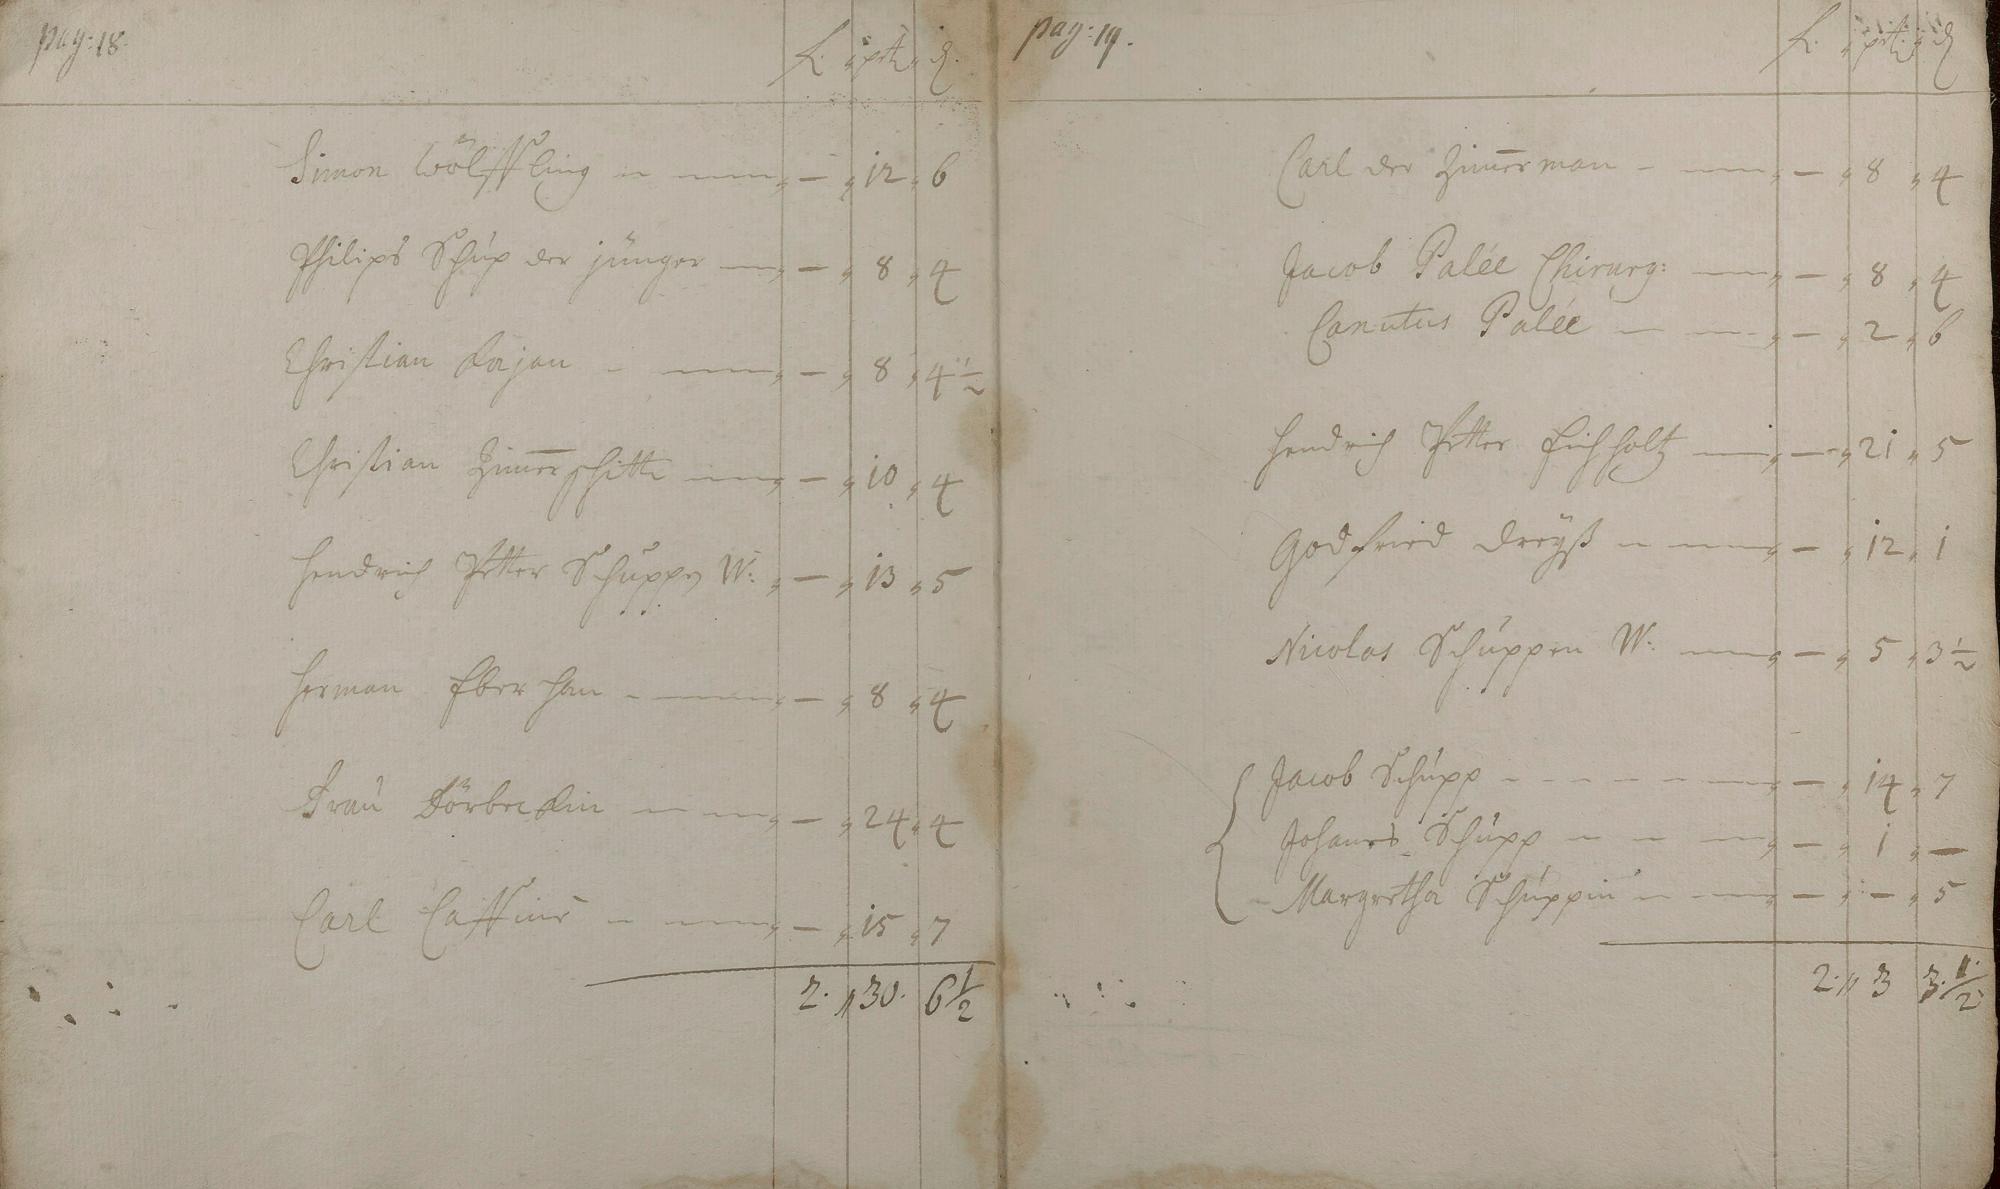 pag: 18.
f. „ ptr „ d.
Simon Wölffling „ — „ 12 „ 6
Philips Schüp der jünger „ — „ 8 „ 4
Christian — „ 8 „ 4 1/2
Christian Zim̄erschitte „ — „ 10 „ 4
Hendrich Petter Schüppen W: „ — „ 13 „ 5
Herman Eberhan „ — „ 8 „ 4
Frau Dörbeckin „ — „ 24 „ 4
Carl Cassius „ — „ 15 „ 7
2. „ 30. 6 1/2
pag: 19.
f. „ ptr „ d
Carl der Zim̄erman „ — „ 8 „ 4
Jacob Palée Chirurg: „ — „ 8 „ 4
Canutus Palée „ — „ 2 „ 6
Hendrich Petter Eichholtz „ — „ 21 „ 5
Godfried Dreyß „ — „ 12 „ 1
Nicolas Schüppen W: „ — „ 5 „ 3 1/2
Jacob Schüpp „ — „ 14 „ 7
Johanes Schüpp „ — „ 1 „ —
Margretha Schüppin „ — „ — „ 5
2. „ 3 3. 1/2